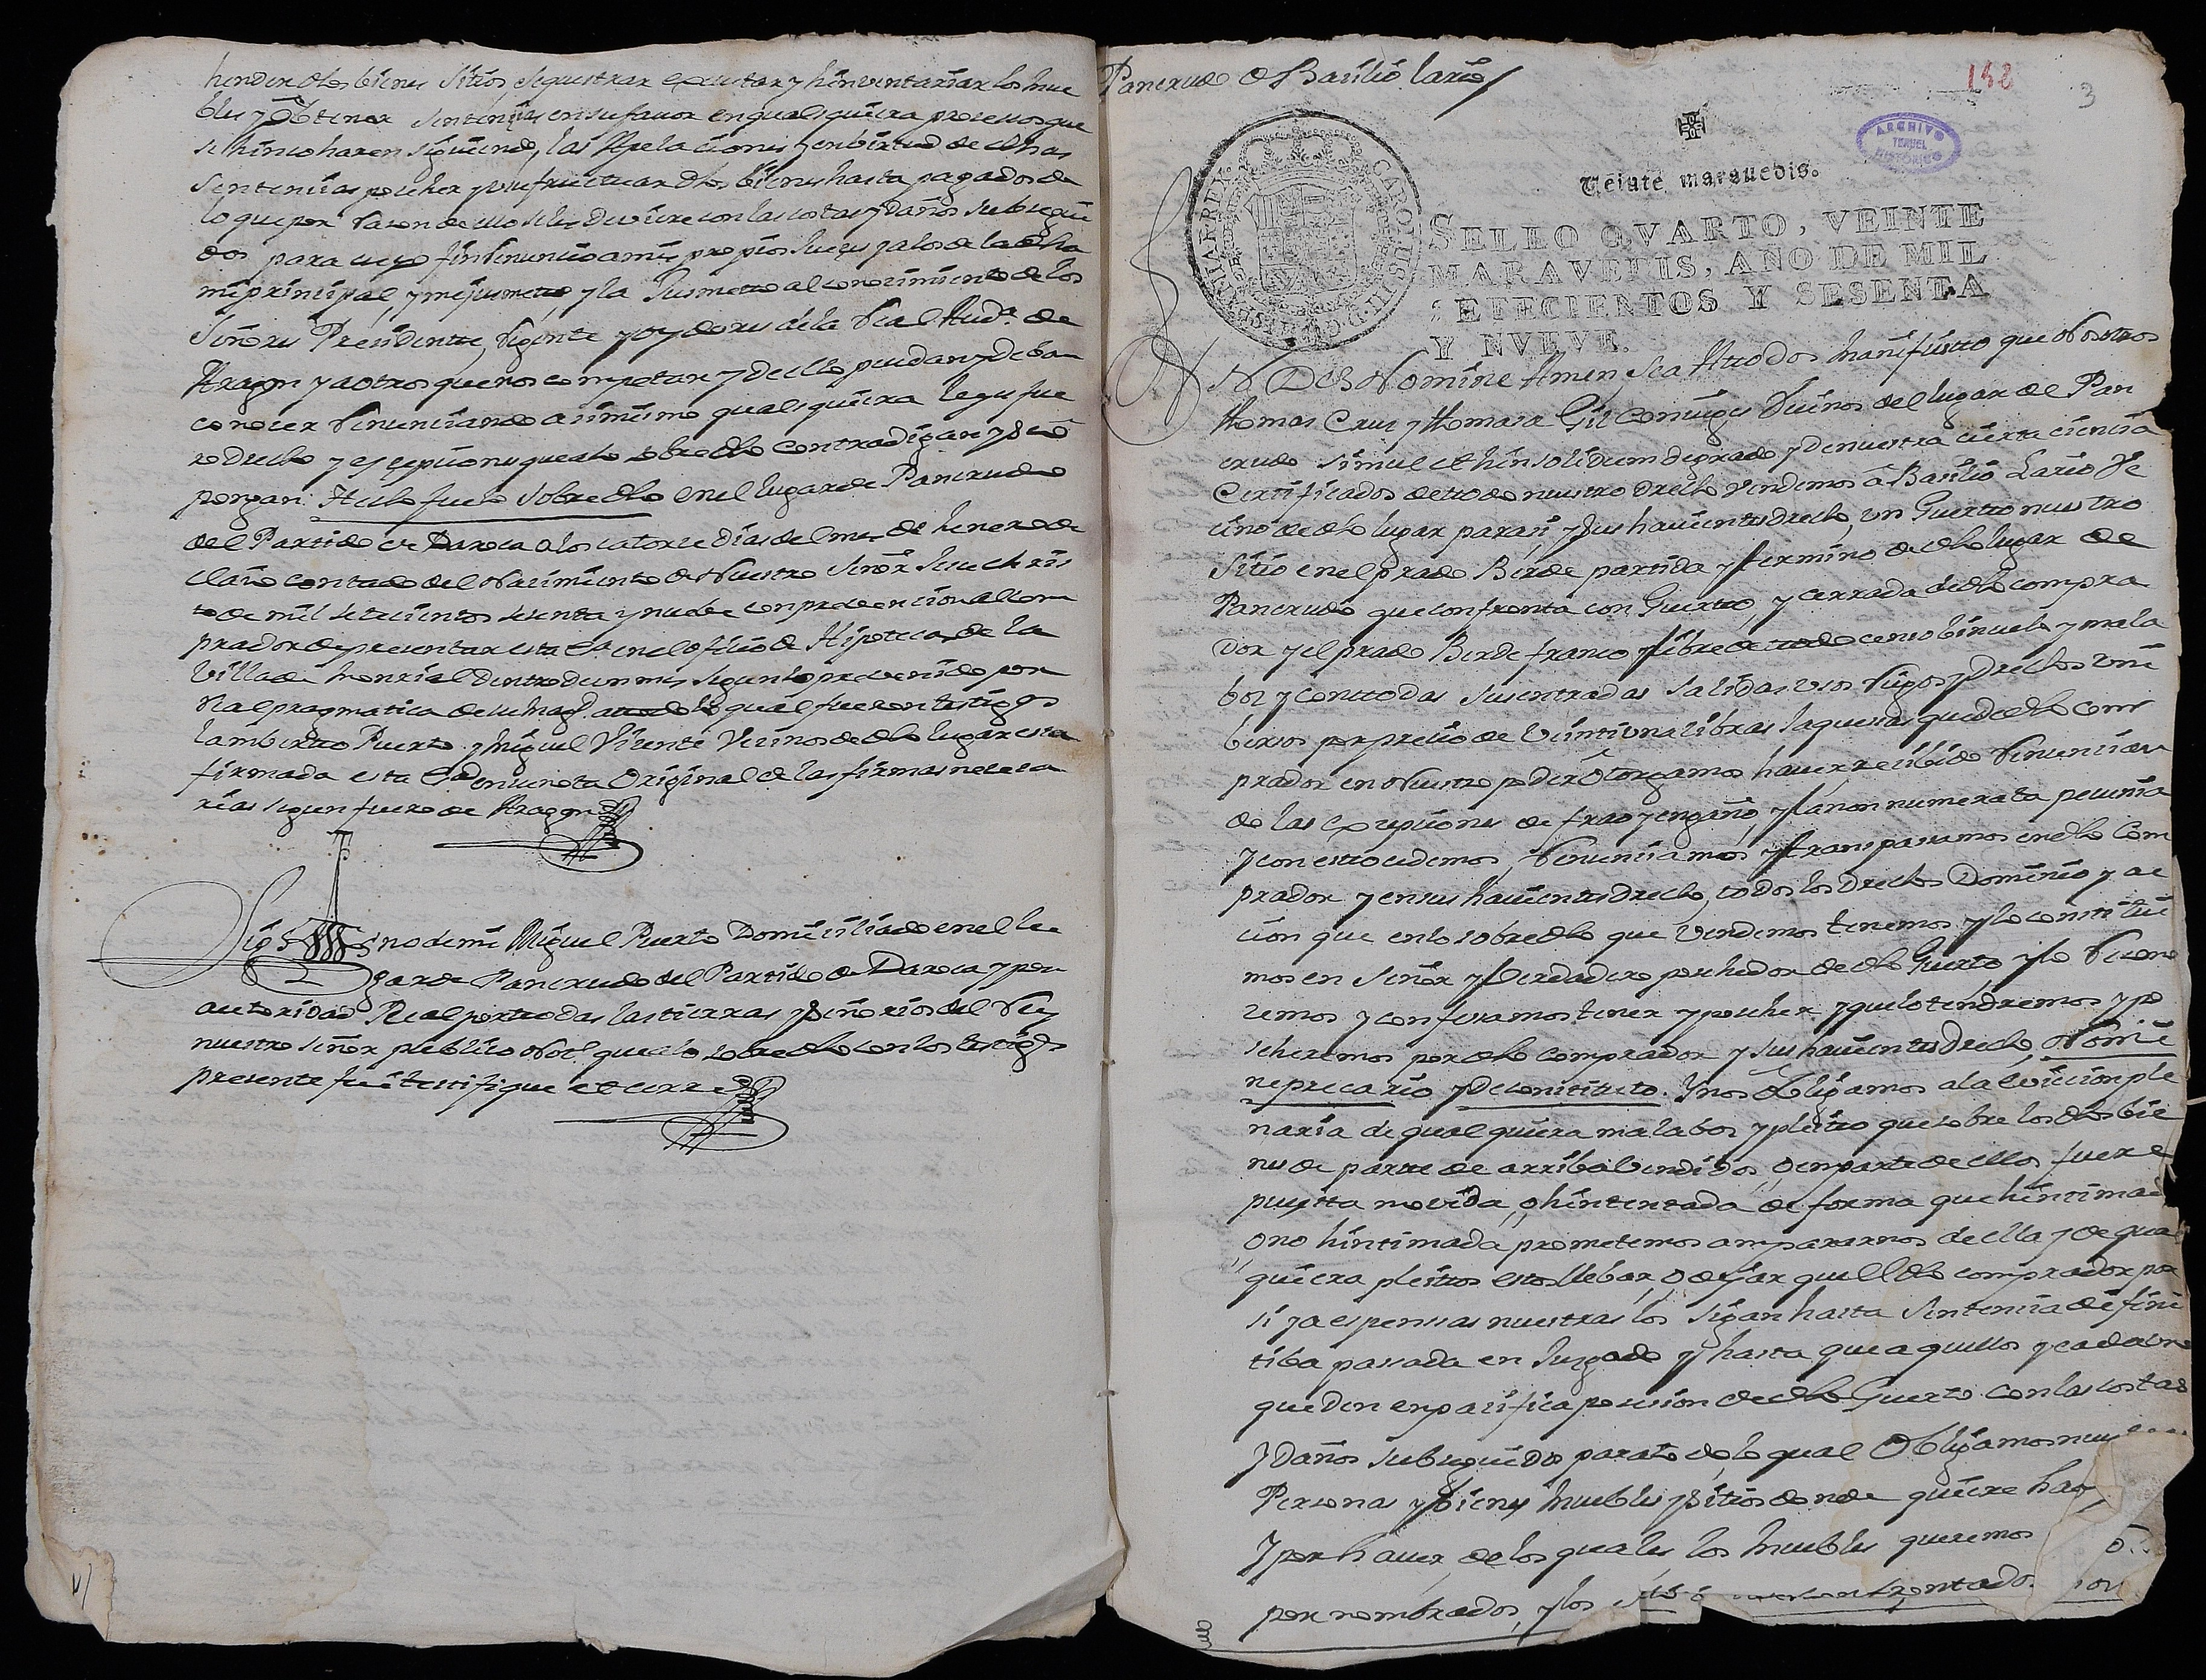 hender dhos bienes sitios, sequestrar executar y hinventariar los mue
bles y Obtener sentencias en su favor en qualesquiera procesos que
se hincoharen siguiendo, las Apelaciones y en birtud de dichas
sentencias poseher y usufructuar dhos bienes hasta pagados de
lo que por razon de ello se les deviere con las costas y Daños subsegui
dos para cuyo fin Renuncio a mis propios Jueces y a los de la dha
mi principal, y me jusmeto, y la Jusmeto al conocimiento de los
Señores Presidente, Rigente y oydores de la Real Auda. de
Aragon y a otros que nos competan y de ello puedan y deban
conocer Renunciando asimismo qualesquiera leyes fue
ro Drecho y escepciones que a lo sobredho contradigan y se o
pongan: Hecho fue lo sobredho en el lugar de Pancrudo
del Partido de Daroca a los catorce Dias del mes de henero de
el año contado del Nacimiento de Nuestro Señor Jesuchris
to de mil setecientos sesenta y nuebe con prebencion al com
prador de presentar esta Esa. en el oficio de Hipotecas de la
Villa de Monreal dentro de un mes segun lo prevenido por
Real pragmatica de su Magd. a todo lo qual fueron testigos
Lamberto Puerto y Miguel Vicente Vecinos de dho lugar esta
firmada esta Esa. en su nota Original de las firmas necesa
rias segun fuero de Aragon
Sig no de mi Miguel Puerto Domiciliado en el lu
gar de Pancrudo del Partido de Daroca y por
autoridad Real por todas las tierras y señorios del Rey
nuestro señor publico Not. que a lo sobredho con los testigos
presente fui testifique et cerre
Pancrudo de Basilio Lario
198
3
ARCHIVO
TERUEL
HISTORICO
Veinte maravedis.
CAROLUS III D G HISPANIAR REX
SELLO QVARTO, VEINTE
MARAVEDIS, AÑO DE MIL
SETECIENTOS Y SESENTA
Y NVEVE.
IN DEI Nomine Amen Sea Atodos manifiesto que Nosotros
thomas Cruz y thomasa Gil Conuiges Vecinos del lugar de Pan
crudo simul et hinsolidum de grado y de nuestra cierta ciencia
Certificados de todo nuestro drecho vendemos â Basilio Lario Ve
cino de dho lugar para si y sus havientes drecho, un Guerto nuestro
Sitio en el prado Berde partida y termino de dho lugar de
Pancrudo que confronta con Guerto, y cerrada de dho compra
dor y el prado Berde franco y libre de todo censo binculo y mala
boz y con todas sus entradas salidas usos Riegos y Drechos uni
bersos por precio de Veintiuna libras Jaquesas que de dho com
prador en Nuestro poder Otorgamos haver recibido Renuncian
do las excepciones de frao y engaño, y la non numerata pecunia
y con esto cedemos, Renunciamos y transpasamos en dho Com
prador y en sus havientes drecho, todos los Drechos Dominio y ac
cion que en lo sobredho que Vendemos tenemos y lo constitui
mos en Señor y Verdadero poschedor de dho Guerto y lo Recono
cemos y confesamos tener y poscher y que lo tendremos y po
scheremos por dho comprador y sus havientes drecho Nomi
ne precario y De constituto. Y nos Obligamos a la Eviccion ple
naria de qualquiera mala bos y pleito que sobre los dhos bie
nes de parte de arriba bendidos, o en parte de ellos fuere
puesta movida, o hintentada de forma que hintimad
o no hintimada prometemos ampararnos de ella y de qual
quiera pleitos estos llebar, o dejar que el dho comprador por
si y a espensas nuestras los sigan hasta sentencia difini
tiba passada en Juzgado y hasta que aquellos y cada uno
queden en pacifica posesion de dho Guerto con las costas
y Daños subseguidos para todo lo qual Obligamos nuestras
Personas y bienes muebles y sitios donde quiere hav
y por haver, de los quales los muebles queremos
por nombrados, y los sitios confrontados